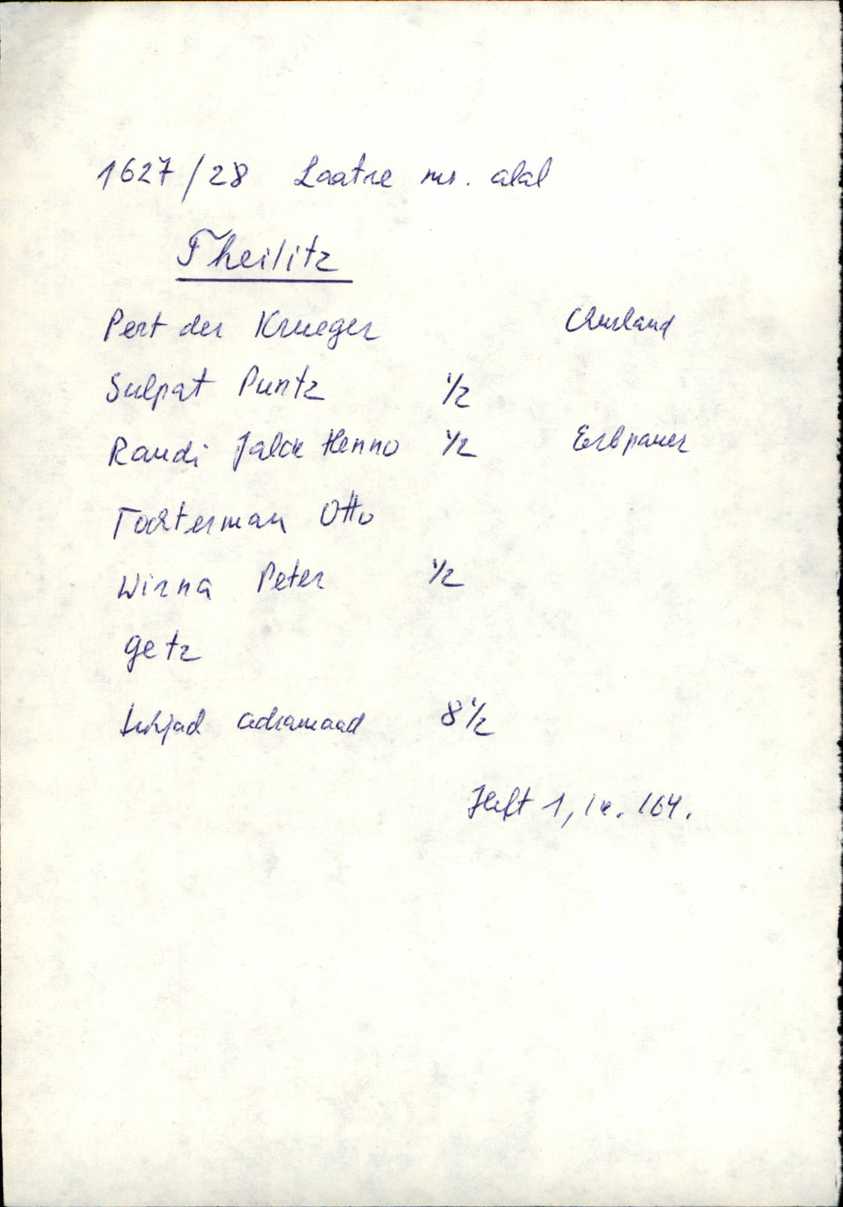 1627/28 Laatre mr. alal
Theilitz
Pert der Krueger Churland
Sulpat Puntz 1/2
Raudi Jalck Henno 1/2 Erbpauer
Tochterman Otto
Wirna Peter 1/2
Getz
tühjad adramaad 8 1/2
Heft 1, lk. 164.